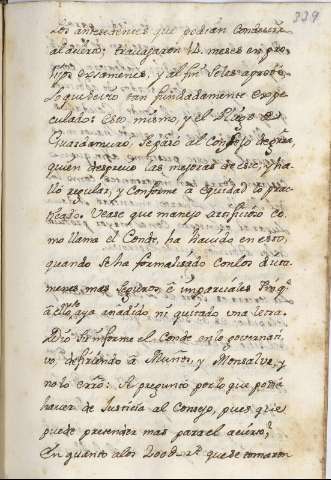 339
los antecedentes que podian conducir
al acierto; travajaron 14 meses en pro-
lijos examenes, y al fin se les aprobo
lo que hecho tan fundadamente espe-
culado: Esto mismo, y el Plano de
Guardamuro, se pasó al Consejo de grra,
quien desprecio las mejoras de este, y ha-
lló regular, y conforme a equidad lo prac-
ticado. Vease que manejo artificioso co-
mo llama el Conde, ha havido en esto,
quando se ha formalizado con los dicta-
menes mas seguros e imparciales sin qe
a ello, aya añadido ni quitado una letra.
Pidió se informe el Conde en lo governati-
vo, defiriendo a Muñoz, y Monsalve, y
no lo erró: Se preguntó por lo que podia
haver de Justicia al Consejo, pues que
puede pretender mas para el acierto?
En quanto a los 2000 rs que se tomaron